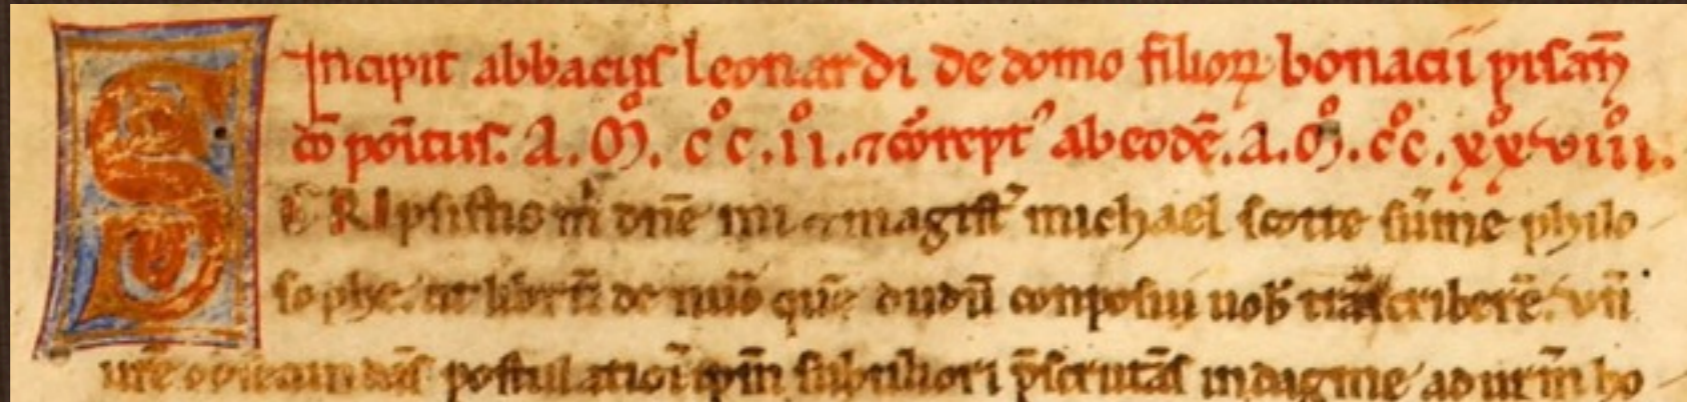 Incipit abbacus leonardi de domo filioꝝ bonacii pisañ
cōpoītus. a. m̊. c̊c. i̊i. ⁊ cōrept᾽ ab eodē. a. m̊. c̊c. xxviii.
SCRIpsistis m̄ dn̄e mi ⁊ magistr̄ michael scotte sūme philo
sophe. ut librū de nūo quē dudū conposui uob̄ trāscriberē. vn̄
ur̄e postulatiōi ip̄m subtiliori p̄scrutās indagine ad ur̄m ho